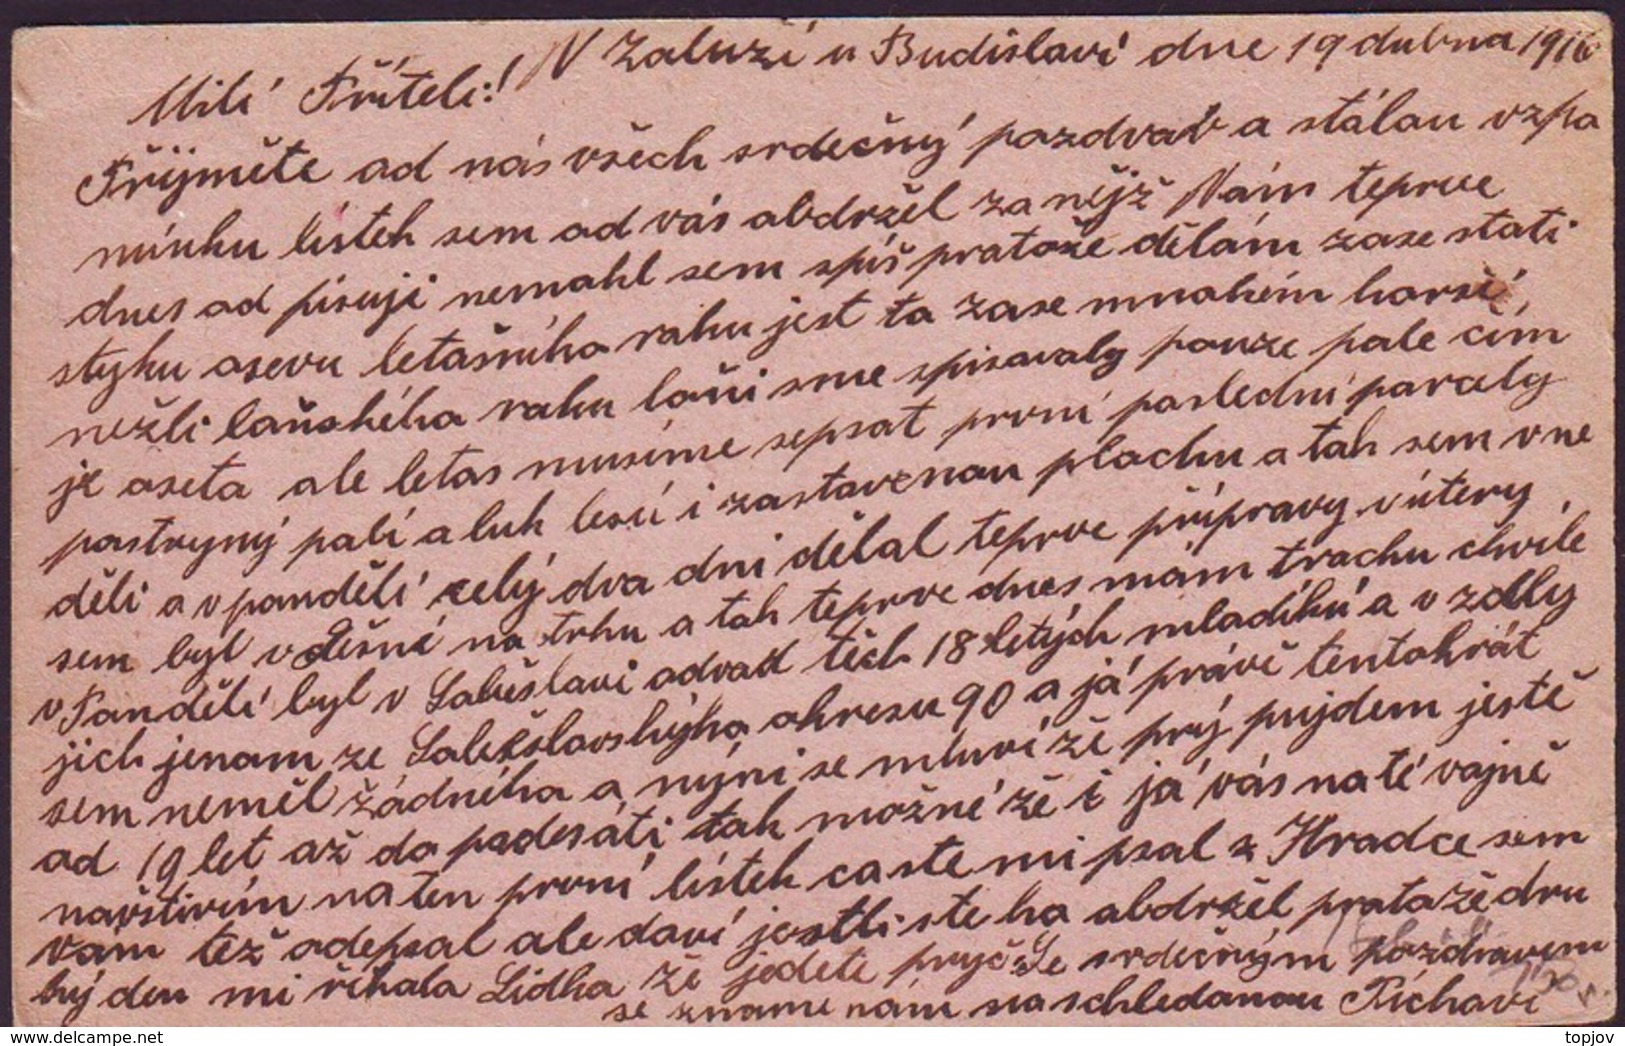 V Zaluží u Budislavi dne 19 dubna 1916
Milí Příteli!
Přijměte ad nás všech srdečný pozdrav a stálau vzpa
mínku lístek sem ad vás abdržel za nějž Vám teprve
dnes ad pisuji nemahl sem spíš pratože dělám zase stati
styku asevu letašního raku jest ta zase mnahém harší
nežli laňského raku laňi sme spisavaly pauze pale čím
je aseta ale letas musíme sepsat první paslední parcely
pastvyný palí a luk lesú i zastavenau plachu a tak sem v ne
děli a v panděli celý dva dni dělal teprve přípravy v útery
sem byl v Dešné na trhu a tak teprve dnes mám trachu chvíle
v Panděli byl v Saběslavi advad těch 18 letých mladíkú a v zdlly
jich jenam ze Saběslavskýha akresu 90 a já právě tentokrát
sem neměl žádnéha a nýni se mluví žě prý pujdem ještě
ad 19 let až do padesáti tak možné žě i já vás na té vajně
navštivím na ten první lístek caste mi psal z Hradce sem
vám též adepsal ale daví jestli ste ha abdržel prata žě dru
hý den mi říkala Lidka žě jedete pryč Se srdečným pozdravem
se známe nám na schledanau Píchavi
delcampe.net
topjov